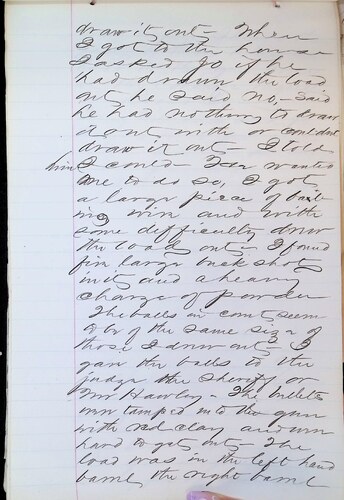 draw it out - When
I got to the house
I asked Jo if he
had drawn the load
out, he said no, - said
he had nothing to draw
it out with or couldnt
draw it out - I told
him I could - Jo wanted
me to do so, I got
a large piece of
and with
some defficulty drew
the load out - I found
five large buck shots
in it and a heavy
charge of powder
The balls in court seem
to be of the same size of
those I drew out - I
gave the balls to the
judge the Sheriff or
Mr Hawley - The bullets
were tamped into the gun
with red clay and were
hard to get out - The
load was in the left hand
barrel, the right barrel